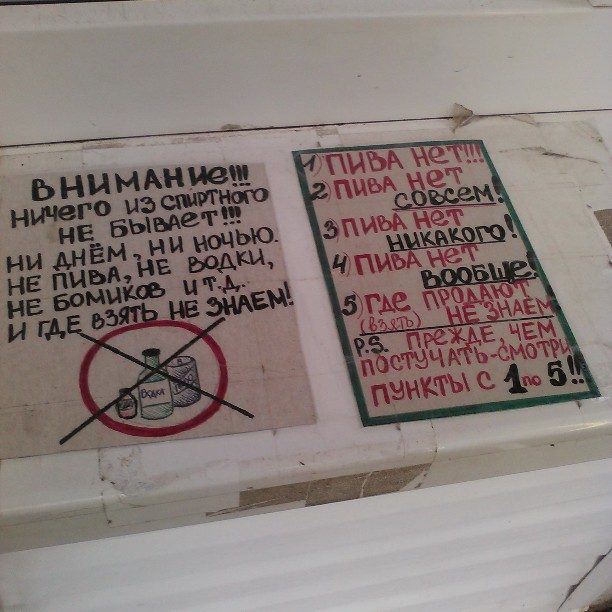 ВНИМАНИе!!!
НИЧЕГО ИЗ СПИРТНОГО
НЕ БЫВАЕТ!!!
НИ ДНЁМ, НИ НОЧЬЮ.
НЕ ПИВА, НЕ ВОДКИ,
НЕ БОМИКОВ И Т.Д.
И ГДЕ ВЗЯТЬ НЕ ЗНАЕМ!
ВОДКА
1) ПИВА НЕТ!!!
2) ПИВА НЕТ
СОВСЕМ!
3) ПИВА НЕТ
НИКАКОГО!
4) ПИВА НЕТ
ВООБЩЕ!
5) ГДЕ ПРОДАЮТ
(ВЗЯТЬ) НЕ ЗНАЕМ
P.S. ПРЕЖДЕ, ЧЕМ
ПОСТУЧАТЬ-СМОТРИ
ПУНКТЫ С 1 по 5!!